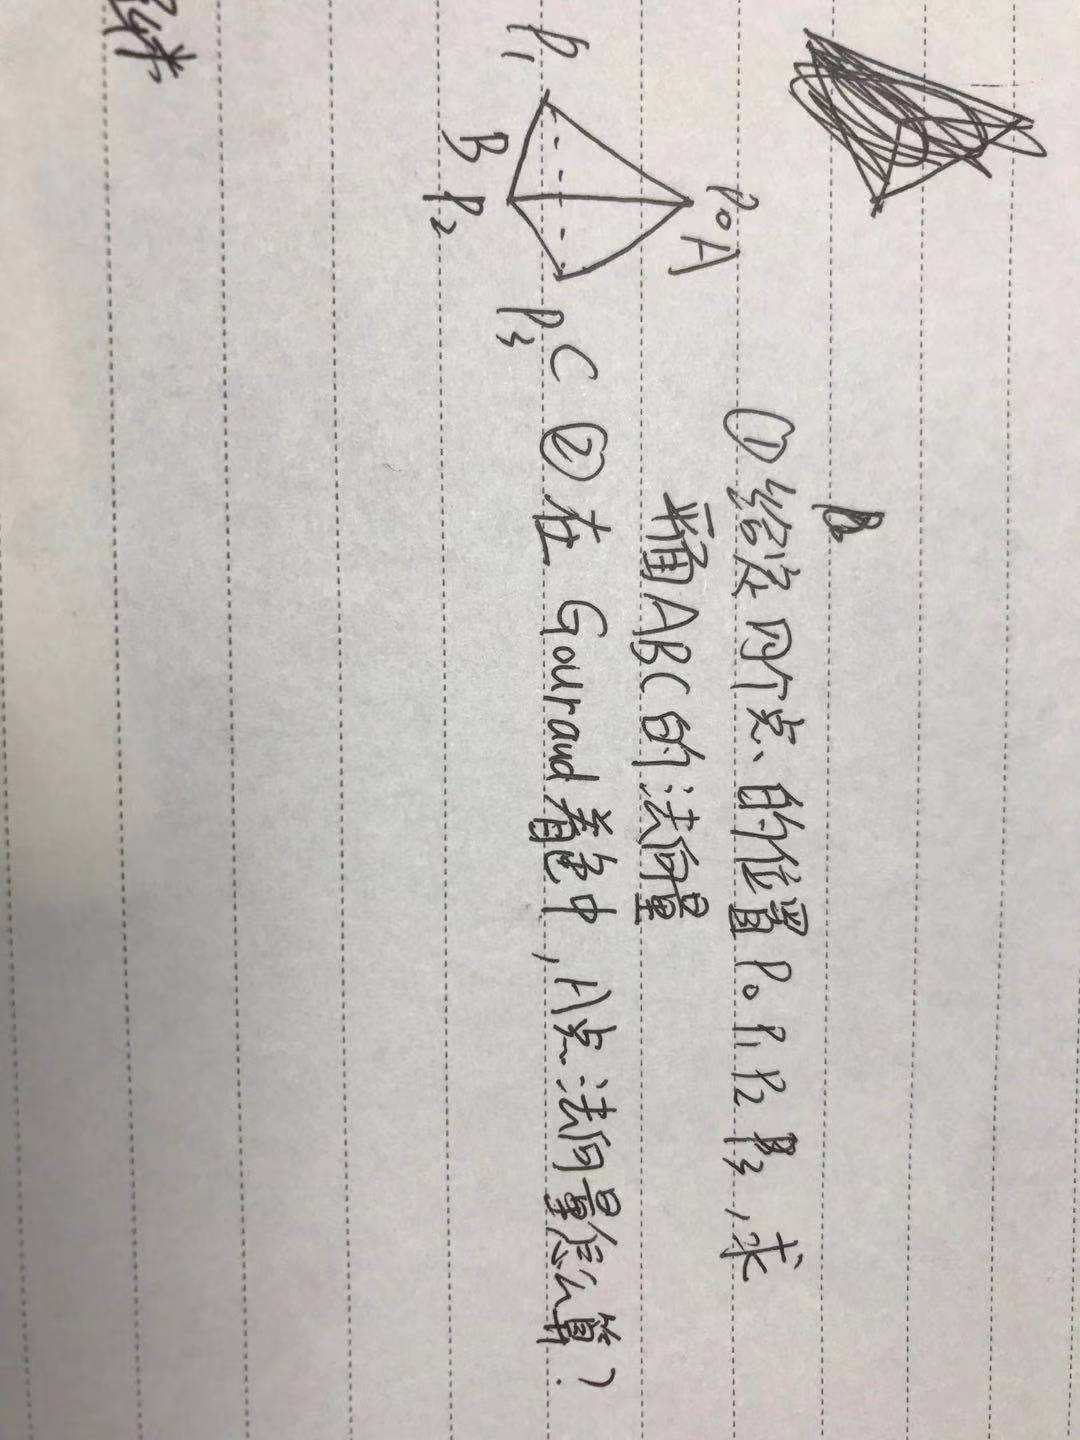 P₀ A
P₁
B P₂
P₃ C
① 给定四个点的位置 P₀ P₁ P₂ P₃,求
平面ABC的法向量
② 在 Gouraud着色中,A点法向量怎么算?